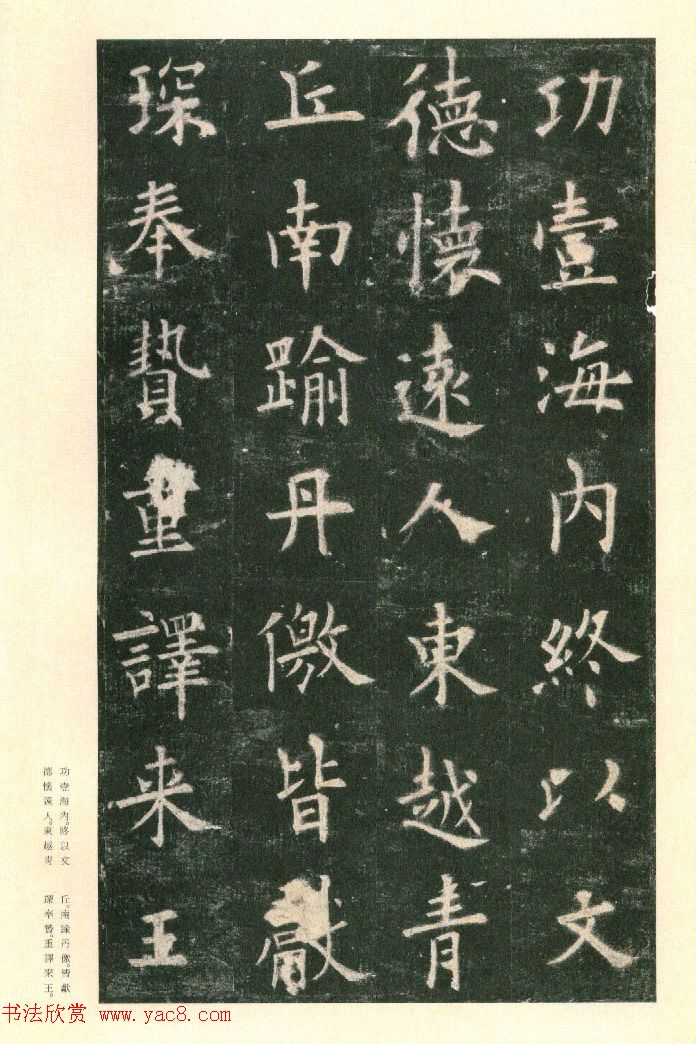 功壹海内終以文
德懷遠人東越青
丘南踰丹儌皆獻
琛奉贄重譯来王
功壹海內。終以文
德懷遠人。東越青
丘。南踰丹儌。皆獻
琛奉贄。重譯來王。
书法欣赏 www.yac8.com